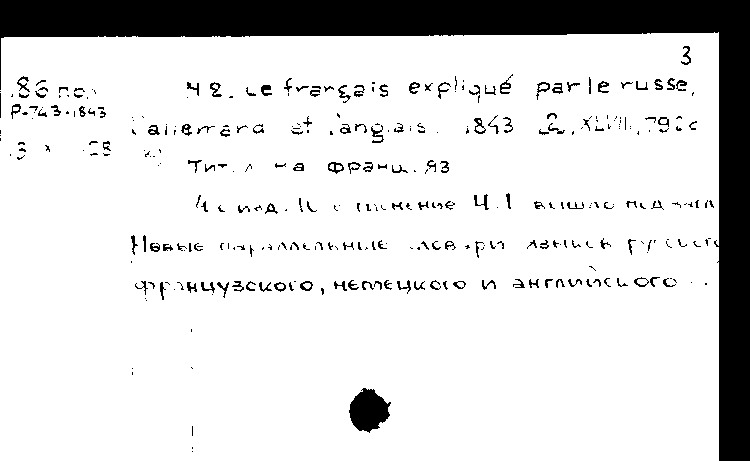 3
Ч 2. Le français expliqué par le russe,
Р-743-1843
l'allemand et l'anglais. 1843 2, XLVIII, 792 с
Тит. л на франц. яз
Ч. 1 вышло под загл
Новые параллельные словари языков русского
французского, немецкого и английского ...